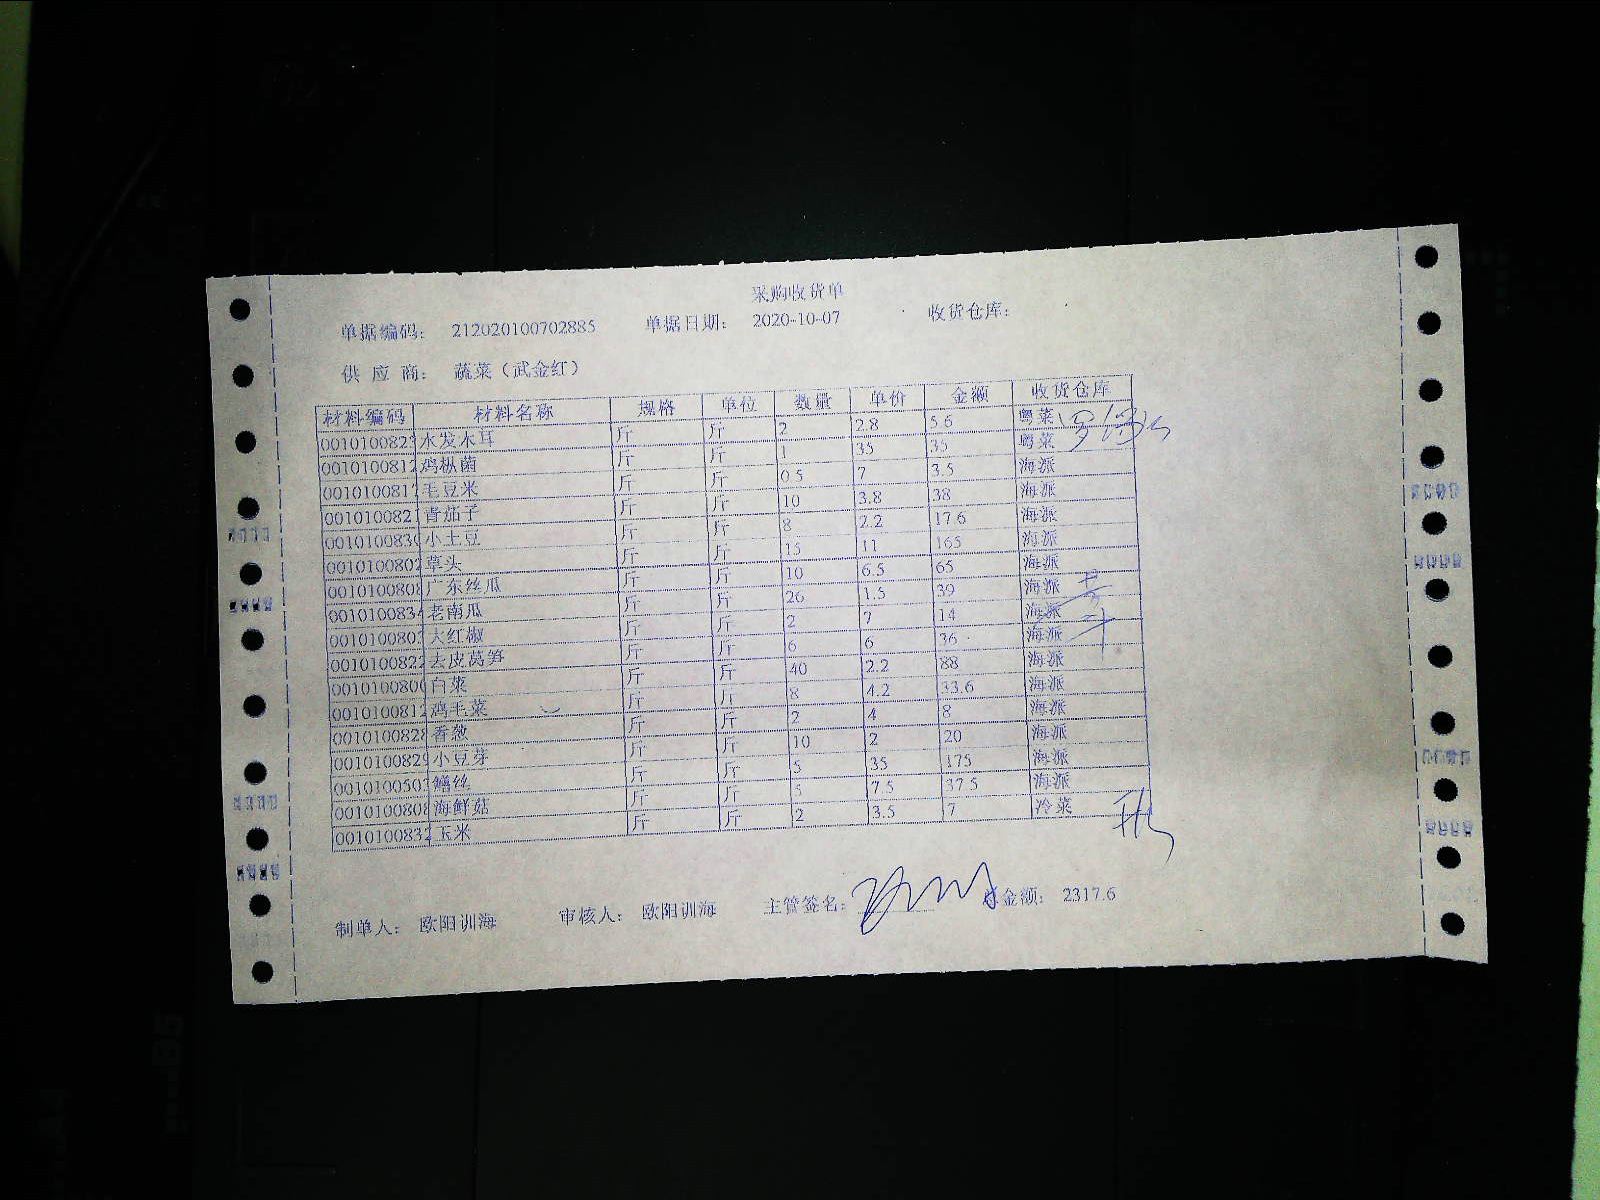 采购收货单
单据编码: 212020100702885 单据日期: 2020-10-07 收货仓库:
供应商: 蔬菜(武金红)
材料编码 材料名称 规格 单位 数量 单价 金额 收货仓库
001010082 水发木耳 斤 斤 2 2.8 5.6 粤菜
001010081 鸡枞菌 斤 斤 1 35 35 粤菜
001010081 毛豆米 斤 斤 0.5 7 3.5 海派
001010082 青茄子 斤 斤 10 3.8 38 海派
001010083 小土豆 斤 斤 8 2.2 17.6 海派
001010080 草头 斤 斤 15 11 165 海派
001010080 广东丝瓜 斤 斤 10 6.5 65 海派
001010083 老南瓜 斤 斤 26 1.5 39 海派
001010080 大红椒 斤 斤 2 7 14 海派
001010082 去皮莴笋 斤 斤 6 6 36 海派
001010080 白菜 斤 斤 40 2.2 88 海派
001010081 鸡毛菜 斤 斤 8 4.2 33.6 海派
001010082 香葱 斤 斤 2 4 8 海派
001010082 小豆芽 斤 斤 10 2 20 海派
001010050 鳝丝 斤 斤 5 35 175 海派
001010080 海鲜菇 斤 斤 5 7.5 37.5 海派
001010083 玉米 斤 斤 2 3.5 7 冷菜
制单人: 欧阳训海 审核人: 欧阳训海 主管签名: 金额: 2317.6